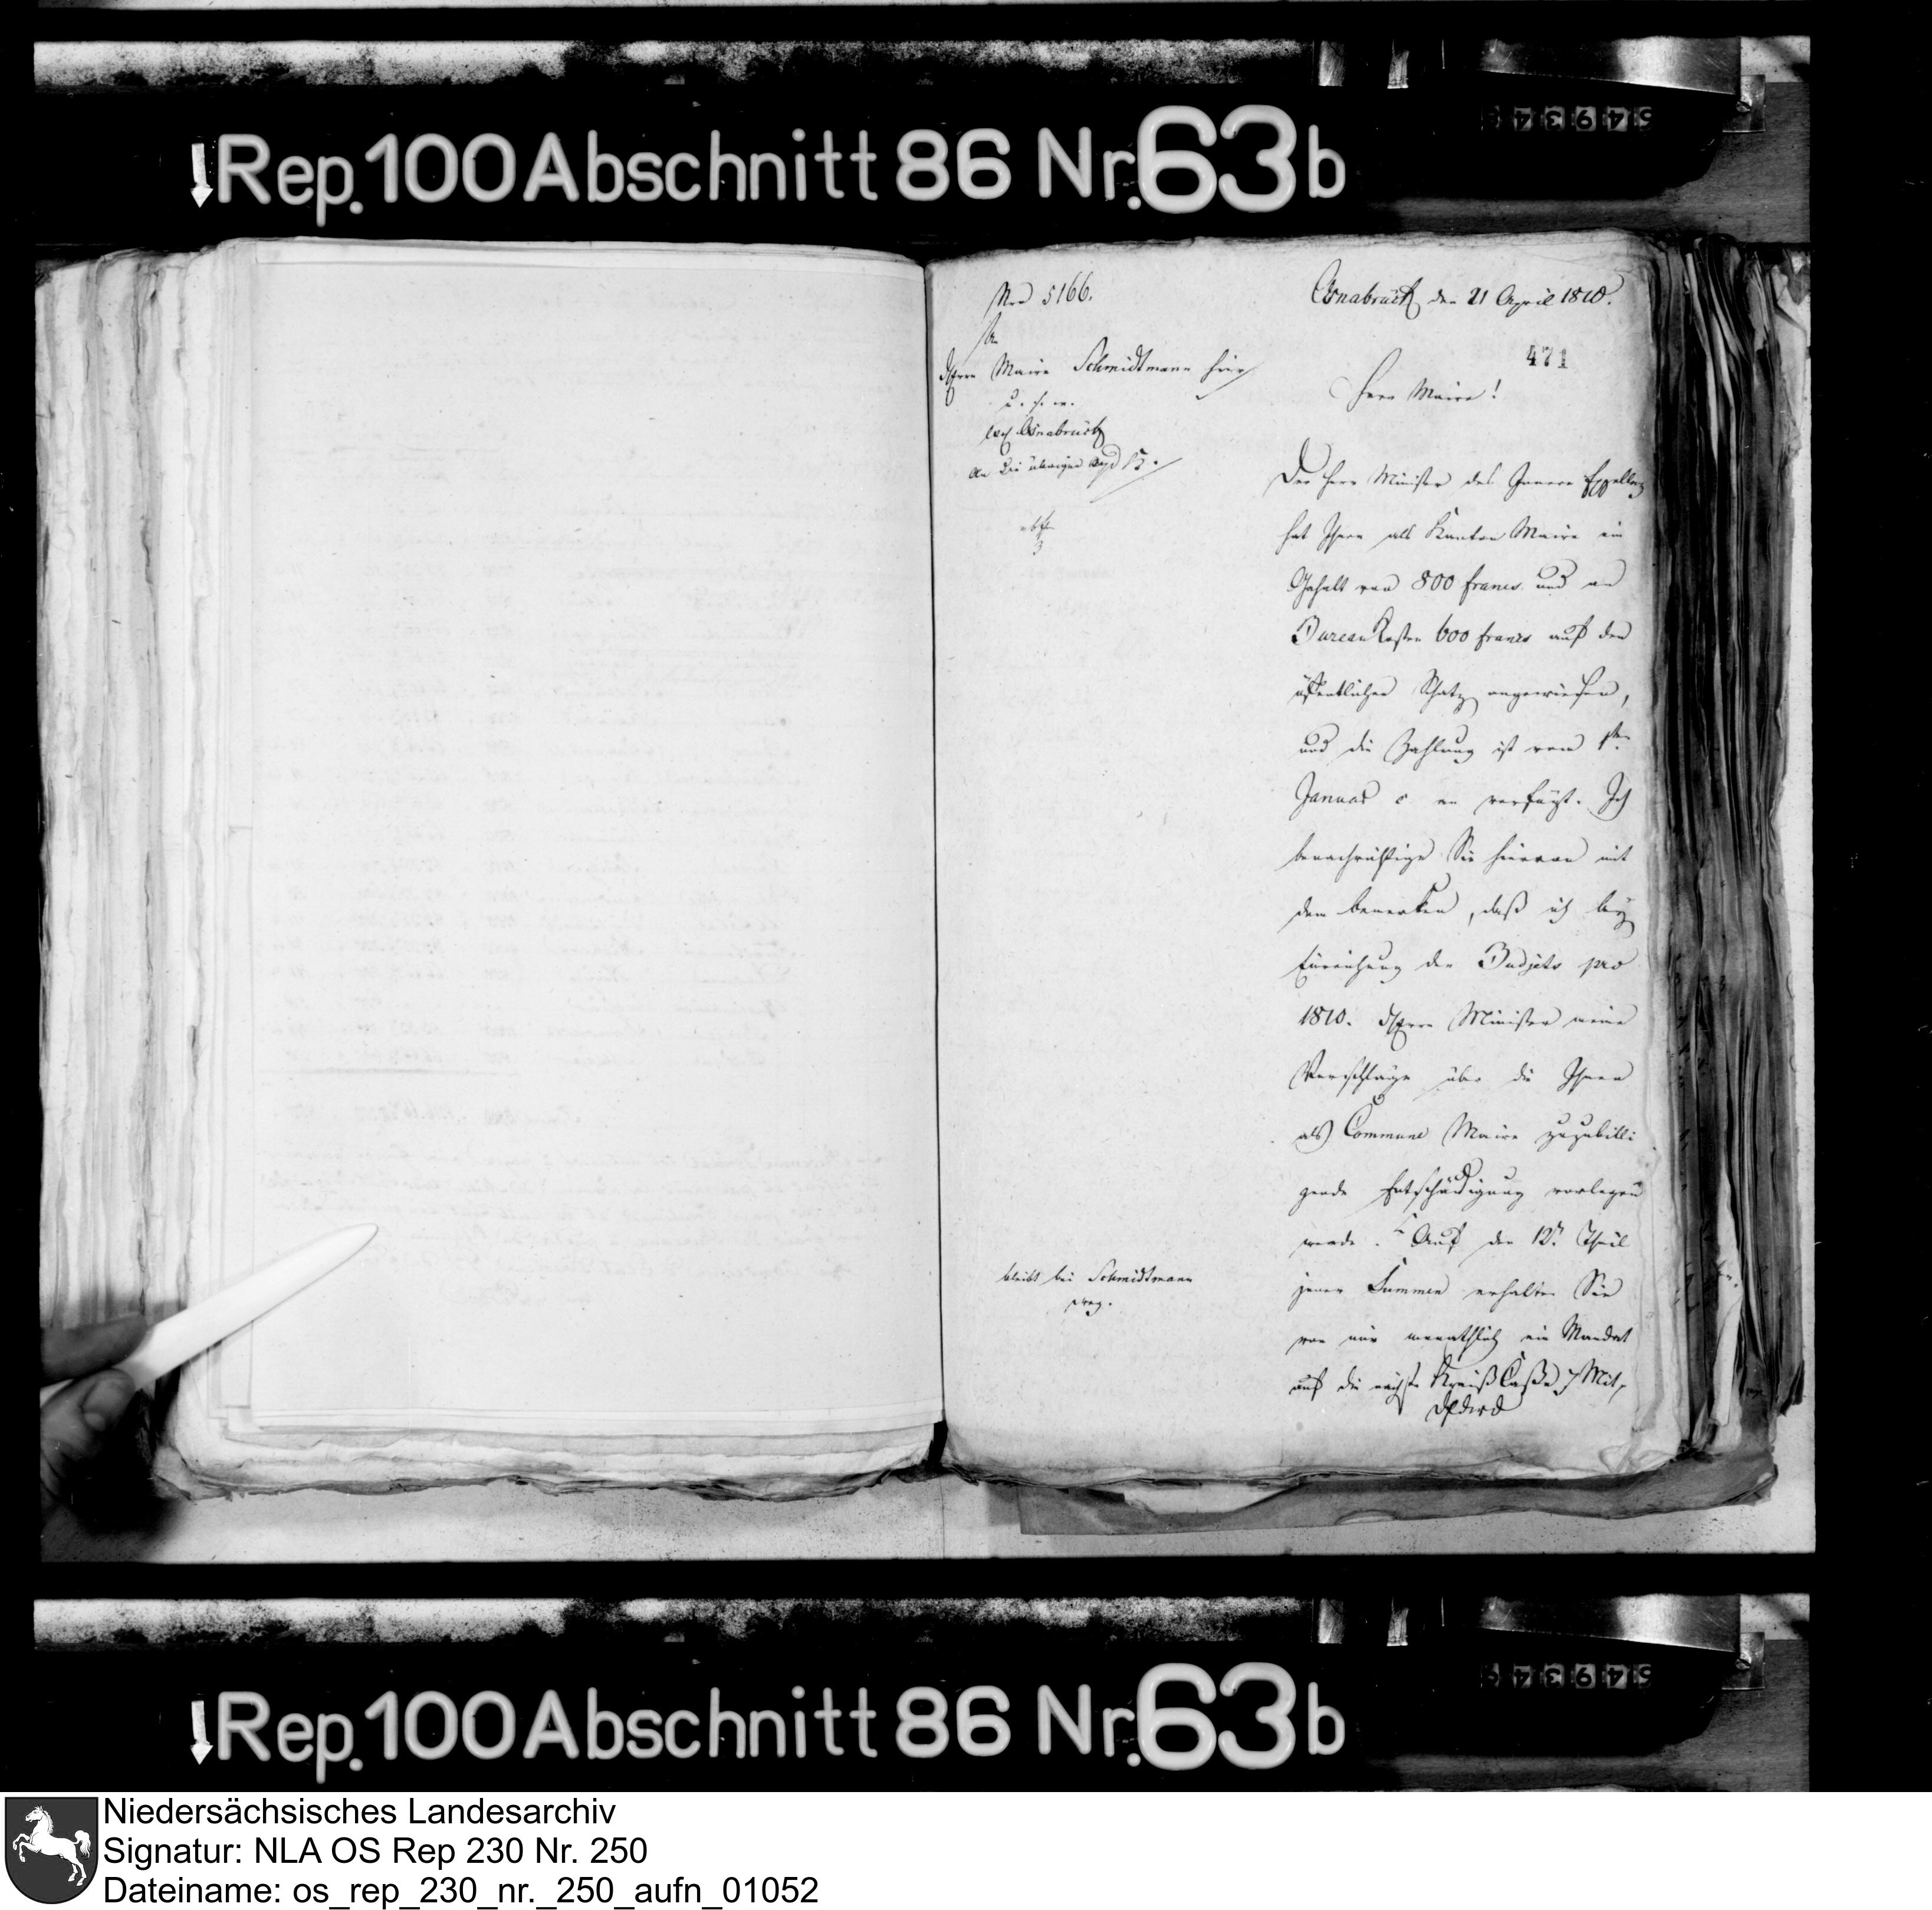 Rep. 100 Abschnitt 86 Nr. 63 b
Nro 5166.
An
Herrn Maire Schmidtmann hier
u. s. w.
Osnabrück
An die übrigen
Osnabrück den 21 April 1810.
471
Herr Maire!
Der Herr Minister des Innern Exzellenz
hat Ihnen als Kanton Maire ein
Gehalt von 800 francs und an
BureauKosten 600 francs auf den
öffentlichen Schatz angewiesen,
und die Zahlung ist vom 1ten
Januar c an verfügt. Ich
benachrichtige Sie hievon mit
dem bemerken, daß ich bey
Einreichung der Budjets pro
1810. Herrn Minister meine
Vorschläge über die Ihnen
als Commune Maire zuzubilli
gende Entschädigung vorlegen
werde. Auf den 12n Theil
jener Summen erhalten Sie
von mir monathlich ein Mandat
auf die nächste KreisCasse. Mit
bleibt bei Schmidtmann
weg.
Rep. 100 Abschnitt 86 Nr. 63 b
Niedersächsisches Landesarchiv
Signatur: NLA OS Rep 230 Nr. 250
Dateiname: os_rep_230_nr._250_aufn_01052